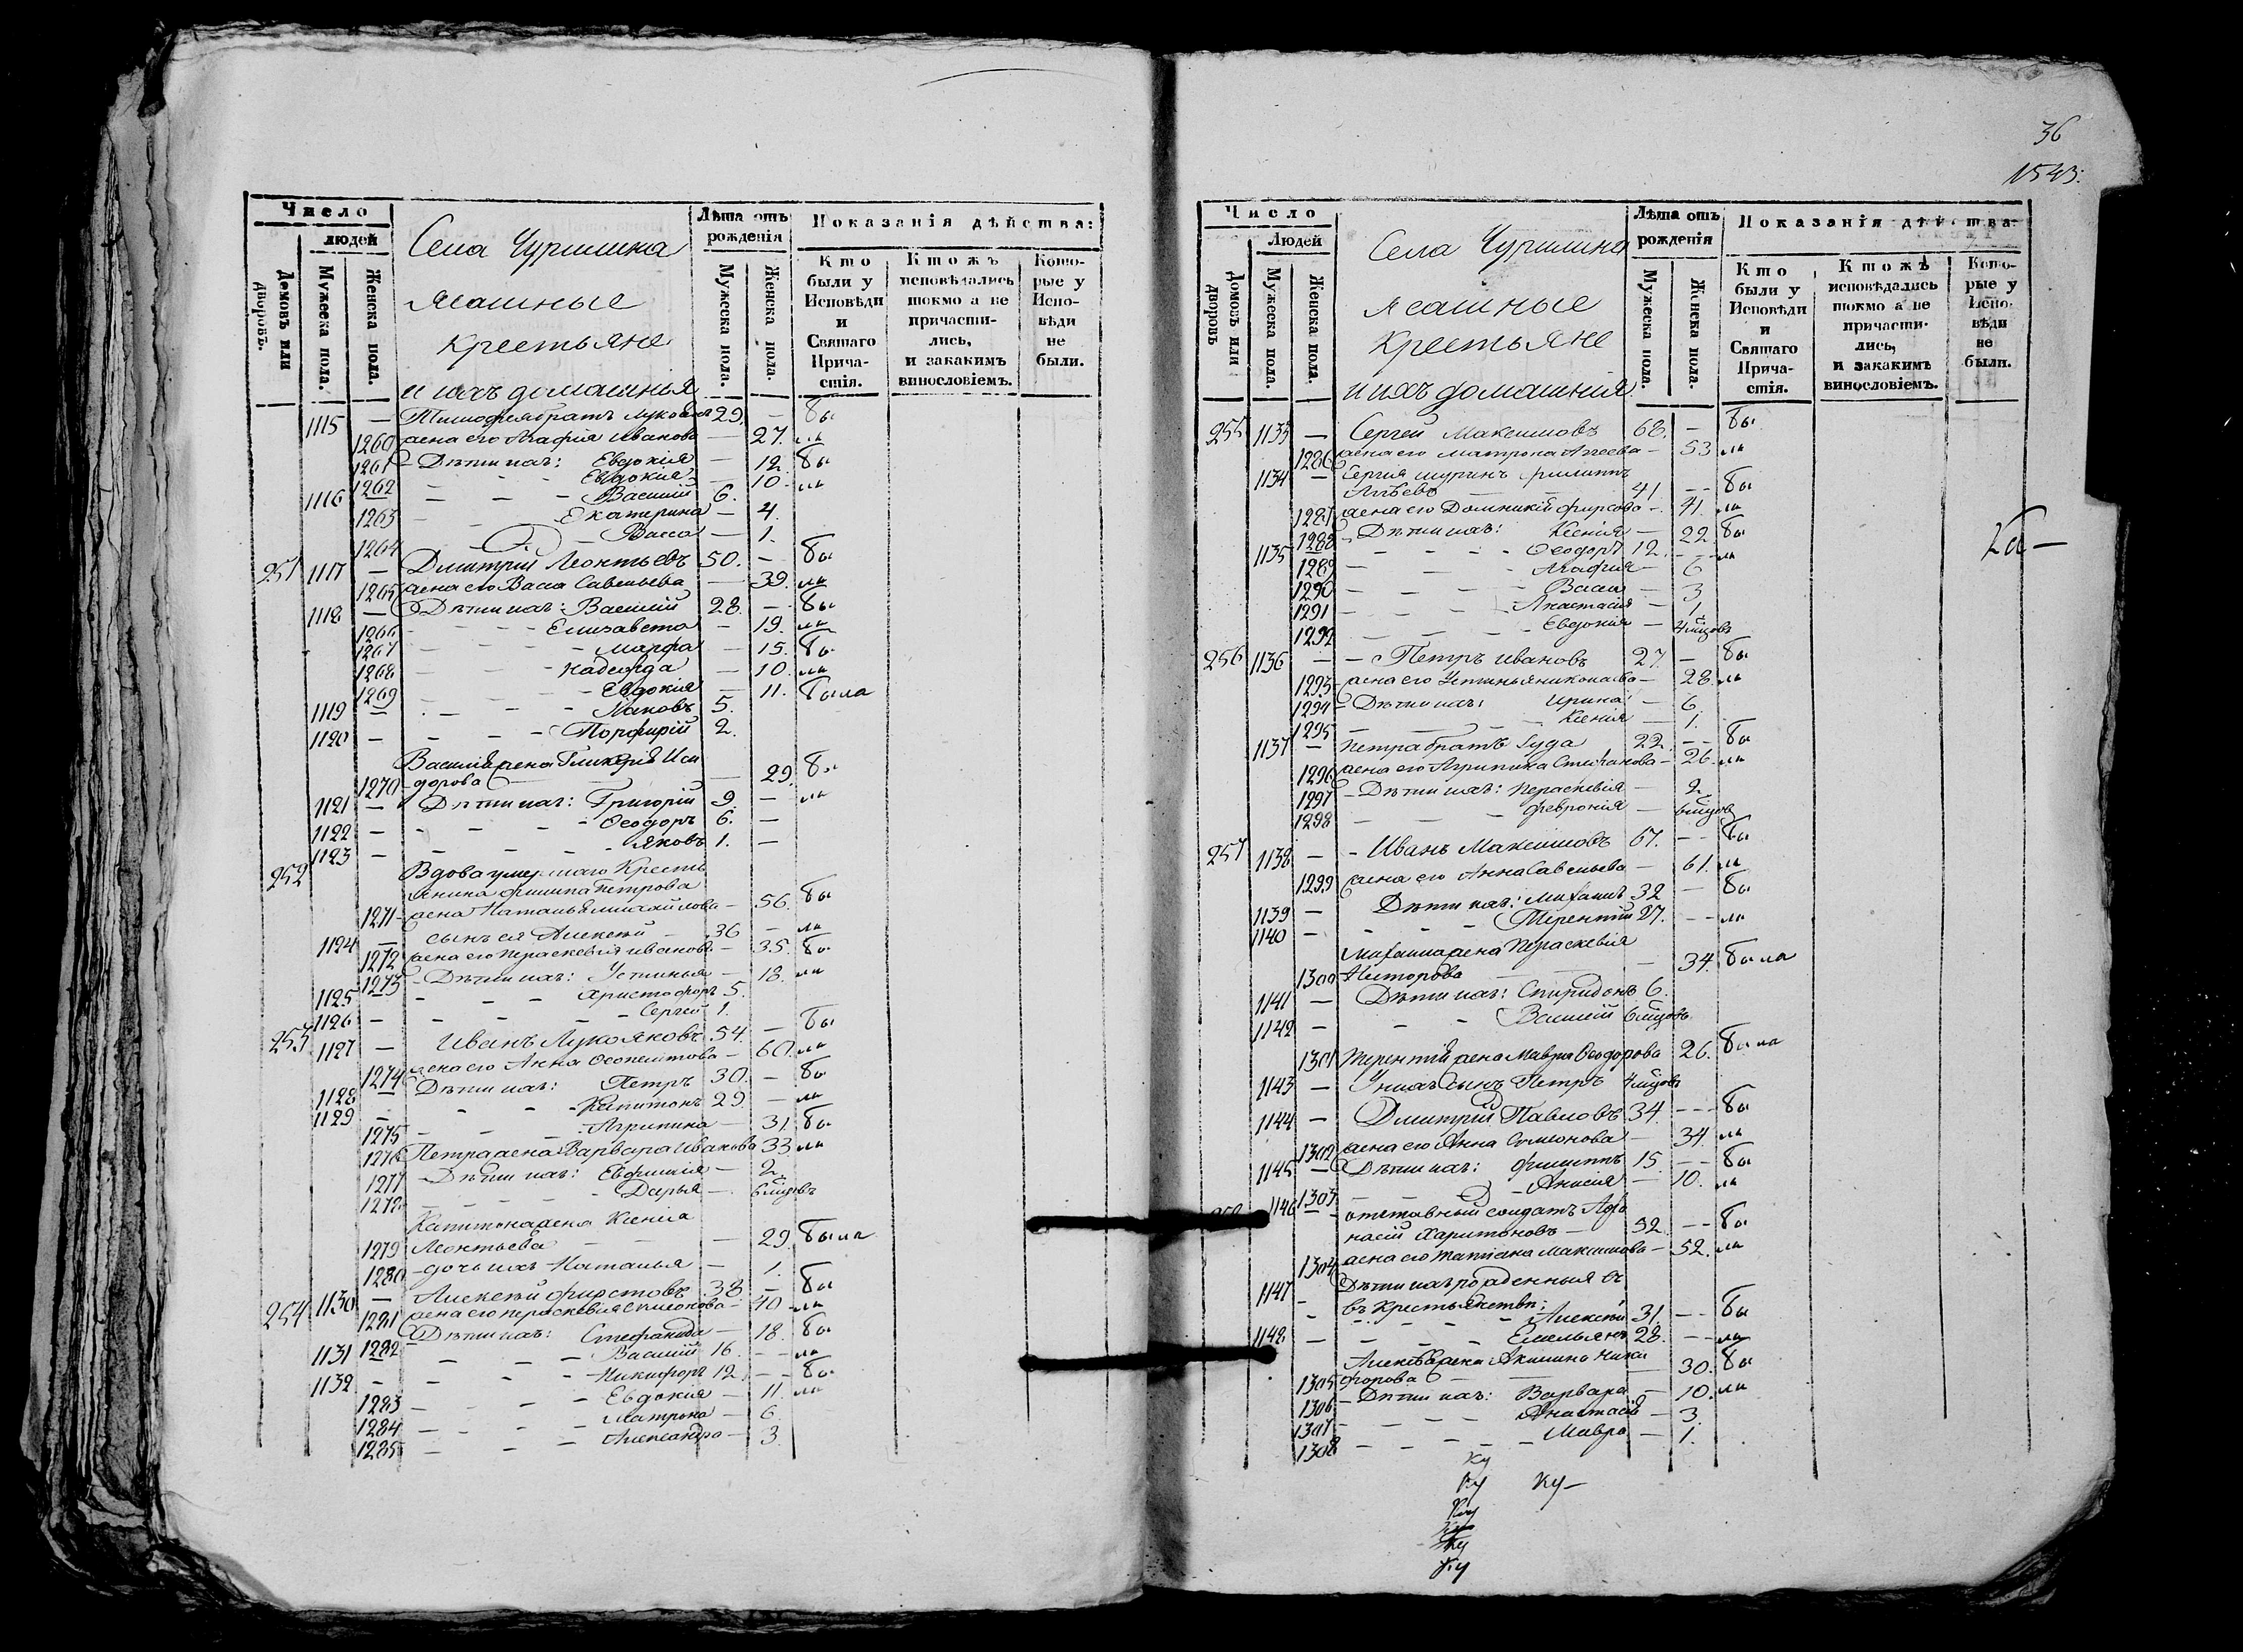 Число
людей
Домовъ или дворовъ.
Мужеска пола.
Женска пола.
Села Чурилина
Ясашные
крестьяне
и ихъ домашнья
Лѣта отъ рожденія
Мужеска пола.
Женска пола.
Показанія дѣйства:
Кто были у Исповѣди и Святаго Прича- стія.
Ктожъ исповѣдались токмо а не причасти- лись, и закакимъ винословіемъ.
Кото- рые у Испо- вѣди не были.
1115 — Тимофея братъ Луковия 29. — бы
1260 жена его Агафия Иванова — 27. ли
1261 Дѣти ихъ: Евдокия — 12. бы
1262 Евдокия — 10. ли
1116 — Василий 6.
1263 Екатерина — 4.
1264 Васса — 1.
251 1117 — Димитрий Леонтьевъ 50. — бы
1265 жена его Васса Савельева — 39. ли
1118 — Дѣти ихъ: Василий 28. — бы
1266 Елизавета — 19. ли
1267 Марфа — 15. бы
1268 Надежда — 10. ли
1269 Евдокия — 11. была
1119 — Иаковъ 5.
1120 — Порфирий 2.
Василия жена Гликерия Иси
1270 дорова — 29. бы
1121 — Дѣти ихъ: Григорий 9. — ли
1122 — Ѳеодоръ 6. —
1123 — Яковъ 1. —
252 Вдова умершаго Кресть
янина Филипа Петрова
1271 жена Наталья Михайлова — 56. бы
1124 — сынъ ея Алексей 36 — ли
1272 жена его Пераскевия Иванова — 35. бы
1273 Дѣти ихъ: Устинья — 18. ли
1125 — Христофоръ 5.
1126 — Сергей 1.
253 1127 — Иванъ Лукояновъ 54. — бы
1274 жена его Анна Ѳеопемтова — 60. ли
1128 — Дѣти ихъ: Петръ 30. — бы
1129 — Капитонъ 29. — ли
1275 Агрипина — 31. бы
1276 Петра жена Варвара Иванова 33 ли
1277 Дѣти ихъ: Евфимия — 2.
1278 Дарья — 6 мцовъ
Капитона жена Ксения
1279 Леонтьева — 29. была
1280 дочь ихъ Наталья — 1.
254 1130 — Алексей Фирстовъ 38 — бы
1281 жена его Пераскевия Симеонова — 40 ли
1282 Дѣти ихъ: Стефанида — 18. бы
1131 — Василий 16. — ли
1132 — Никифоръ 12. — бы
1283 Евдокия — 11. ли
1284 Матрона — 6.
1285 Александра — 3.
36
1543.
Число
Людей
Домовъ или дворовъ
Мужеска пола.
Женска пола.
Села Чурилина
Ясашные
Крестьяне
и ихъ домашния
Лѣта отъ рожденія
Мужеска пола.
Женска пола.
Показанія дѣйства:
Кто были у Исповѣди и Святаго Прича- стія.
Ктожъ исповѣдались токмо а не причасти- лись, и закакимъ винословіемъ.
Кото- рые у Испо- вѣди не были.
255 1133 — Сергей Максимовъ 68. — бы
1286 жена его Матрона Агеева — 53 ли
1134 — Сергия шуринъ Филиппъ
Агѣевъ 41. — бы
1287 жена его Домникия Фирсова — 41. ли
1288 Дѣти ихъ: Ксения — 22. бы
1135 — Ѳеодоръ 12. — ли
1289 Агафия — 6
1290 Васса — 3
1291 Анастасия — 1.
1292 Евдокия — 4 мцовъ
256 1136 — Петръ Ивановъ 27. — бы
1293 жена его Устинья Николаева — 28. ли
1294 Дѣти ихъ: Ирина — 6
1295 Ксения — 1.
1137 — Петра братъ Іуда 22. — бы
1296 жена его Агрипина Стефанова — 26. ли
1297 Дѣти ихъ: Пераскевия — 2.
1298 Феврония — 6 мцовъ
257 1138 — Иванъ Максимовъ 67. — бы
1299 жена его Анна Савельева — 61. ли
1139 — Дѣти ихъ: Михаилъ 32 — бы
1140 — Терентий 27. — ли
Михаила жена Пераскевия
1300 — 34. была
1141 — Дѣти ихъ: Спиридонъ 6.
1142 — Василий 6 мцовъ
1301 Терентия жена Мавра Ѳеодорова 26. была
1143 — У нихъ сынъ Петръ 4 мцовъ
1144 — Димитрий Павловъ 34. — бы
1302 жена его Анна Симеонова — 34. ли
1145 — Дѣти ихъ: Филиппъ 15. — бы
1303 Анисия — 10. ли
1146 — отставный солдатъ Афа
насий Харитоновъ — 52. — бы
1304 жена его Татиана Максимова — 52. ли
1147 — Дѣти ихъ рожденныя въ
въ Крестьянствѣ;
Алексей 31. — бы
1148 — Емельянъ 28. — ли
Алексея жена Акилина Ники
1305 форова — 30. бы
1306 Дѣти ихъ: Варвара — 10. ли
1307 Анастасия — 3.
1308 Мавра — 1.
ку
ку ку
ку
ку
ку